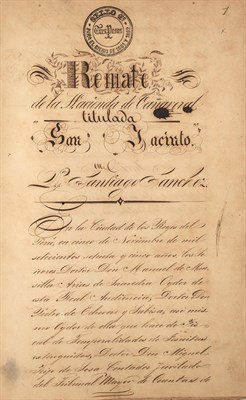 SELLO 3º
Remate
de la Hacienda de Cañaveral
titulada
San Jacinto.
en
Dn. Santiago Sanchez.
En la Ciudad de los Reyes del
Perú, en cinco de Noviembre de mil
setecientos setenta y cinco años los Se-
ñores Doctor Don Manuel de Man-
silla Arias de Saavedra Oydor de
esta Real Audiencia, Doctor Don
de ella que hace de Fis-
cal de Temporalidades de Jesuitas
extinguidos, Doctor Don Miguel
Feijo de Sosa Contador jubilado
del Tribunal Mayor de Cuentas de